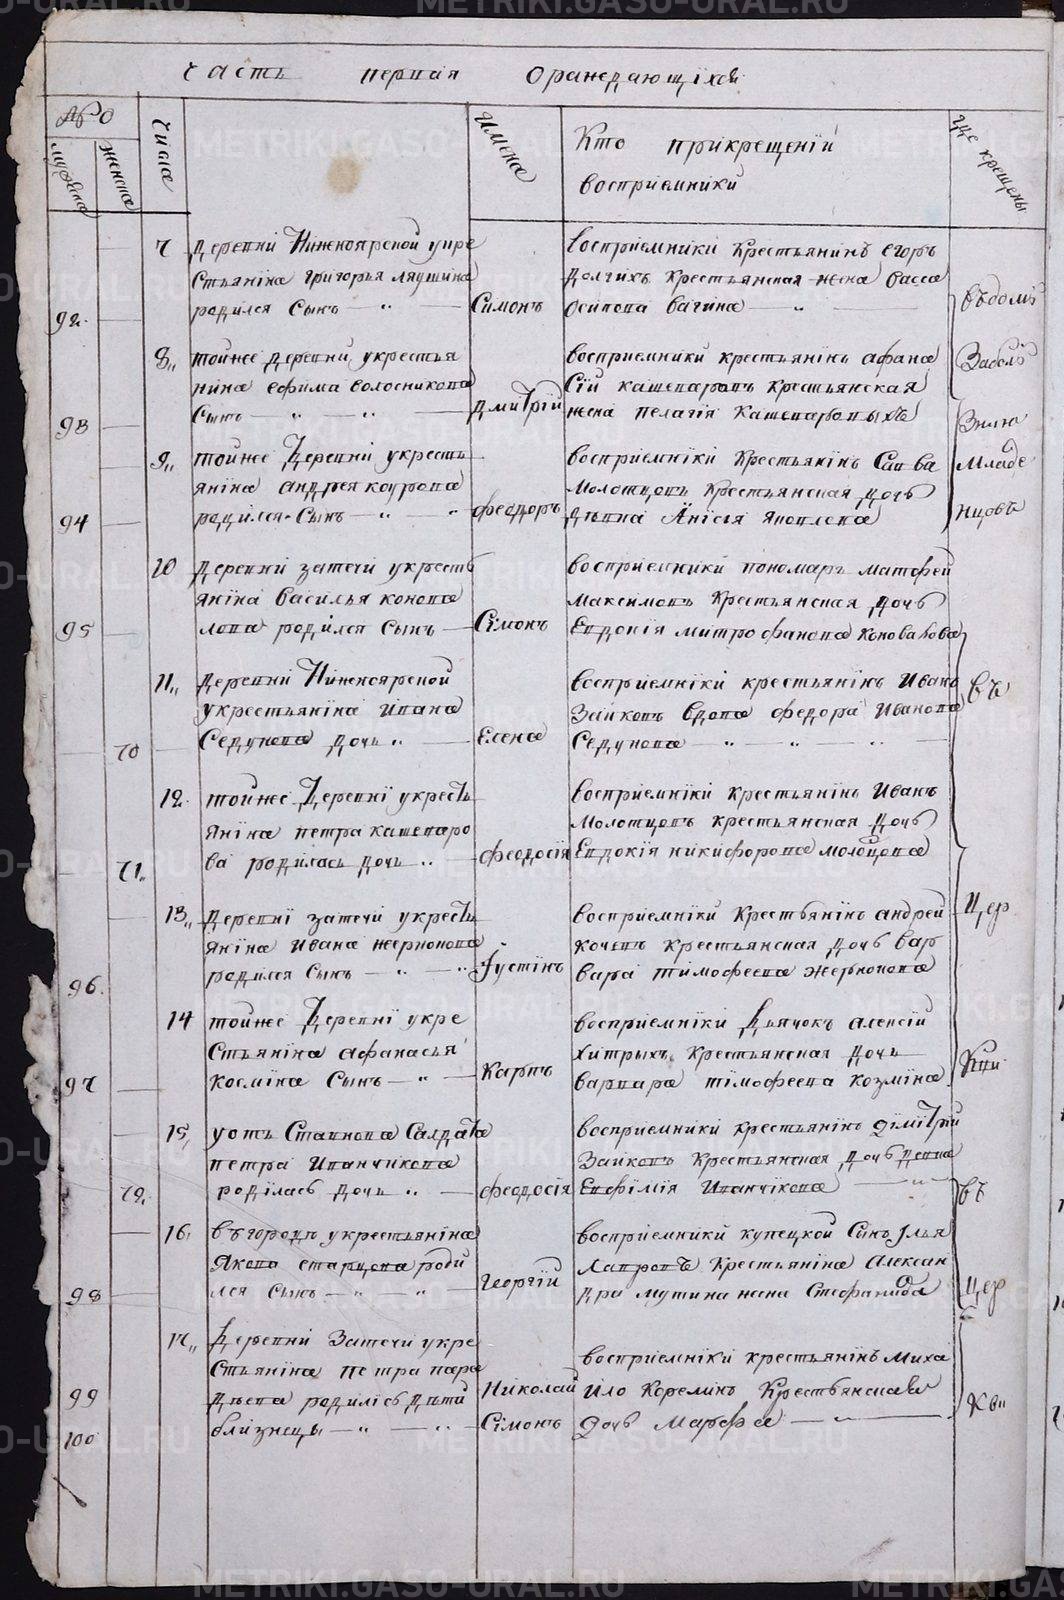 Часть первая Ораждающихся
№ о
мужеска
женска
Числа
Имена
Кто прикрещенїи
восприемники
где крещены
92.
7
деревни Нижноярской укре
стьянина григорья
родился сынъ — " —
Симонъ
восприемники крестьянинъ егоръ
Долгихъ крестьянская жена васса
осипова вагина — " —
въдомѣ
93
8"
тойже деревни укрестья
нина ефима волосникова
сынъ — " — " —
Дмитрїй
восприемники крестьянинъ афана
сїй кашепаровъ крестьянская
жена пелагїя кашепаровыхъ
94
9"
тойже Деревни укресть
янина андрея
родился сынъ — " — "
феодоръ
восприемнїки крестьянїнъ Савва
Молотцовъ крестьянская дочь
дѣвка Анїсья Яковлева
Младе
нцовъ
95
10
деревни затечи укресть
янїна василья конова
лова родился сынъ —
Сїмонъ
восприемники пономарь матфей
максимовъ крестьянская дочь
Евдокїя митрофанова Коновалова
70
11"
деревни Нижноярской
укрестьянїна ивана
Седунова дочь " —
Елена
восприемнїки крестьянїнъ Иванъ
Зайковъ вдова федора Иванова
Седунова — " — " — "
въ
71.
12.
тойже Деревнї укресть
янїна петра кашепаро
ва родилась дочь "
феодосїя
восприемнїки крестьянїнъ Иванъ
Молотцовъ крестьянская дочь
Евдокїя никифорова молоцова
96.
13"
деревнї затечи укресть
янїна ивана жернокова
родился сынъ — " — "
Іустїнъ
восприемнїки крестьянїнъ андрей
кочевъ крестьянская дочь вар
вара тимофеева жернокова
Цер
97
14
тойже Деревнї укре
стьянїна афанасья
космїна сынъ — " —
Карпъ
восприемнїки Дьячокъ алексїй
хитрыхъ крестьянская дочь
варвара тїмофеева козмїна
Кви
72.
15,
уотъ Ставнова Салдата
петра иванчикова
родїлась дочь " —
феодосїя
восприемники крестьянїнъ дїмїтрїй
Зайковъ крестьянская дочь девка
Евфїмїя Иванчїкова — " —
въ
98
16.
въгородѣ укрестьянїна
якова старцова роди
лся сынъ — " — " —
георгїй
восприемники купецкой сынъ Илья
Лавровъ крестьянїна алексан
дра мутина жена Стефанида
Цер
99
100
17"
Деревни Затечи укре
стьянїна петра пара
дѣева родилїсь дѣти
близнецы — " — "
Николай
Сїмонъ
восприемнїки крестьянїнъ Миха
ило Корелинъ Крестьянская
дочь Марфа — " —
Кви